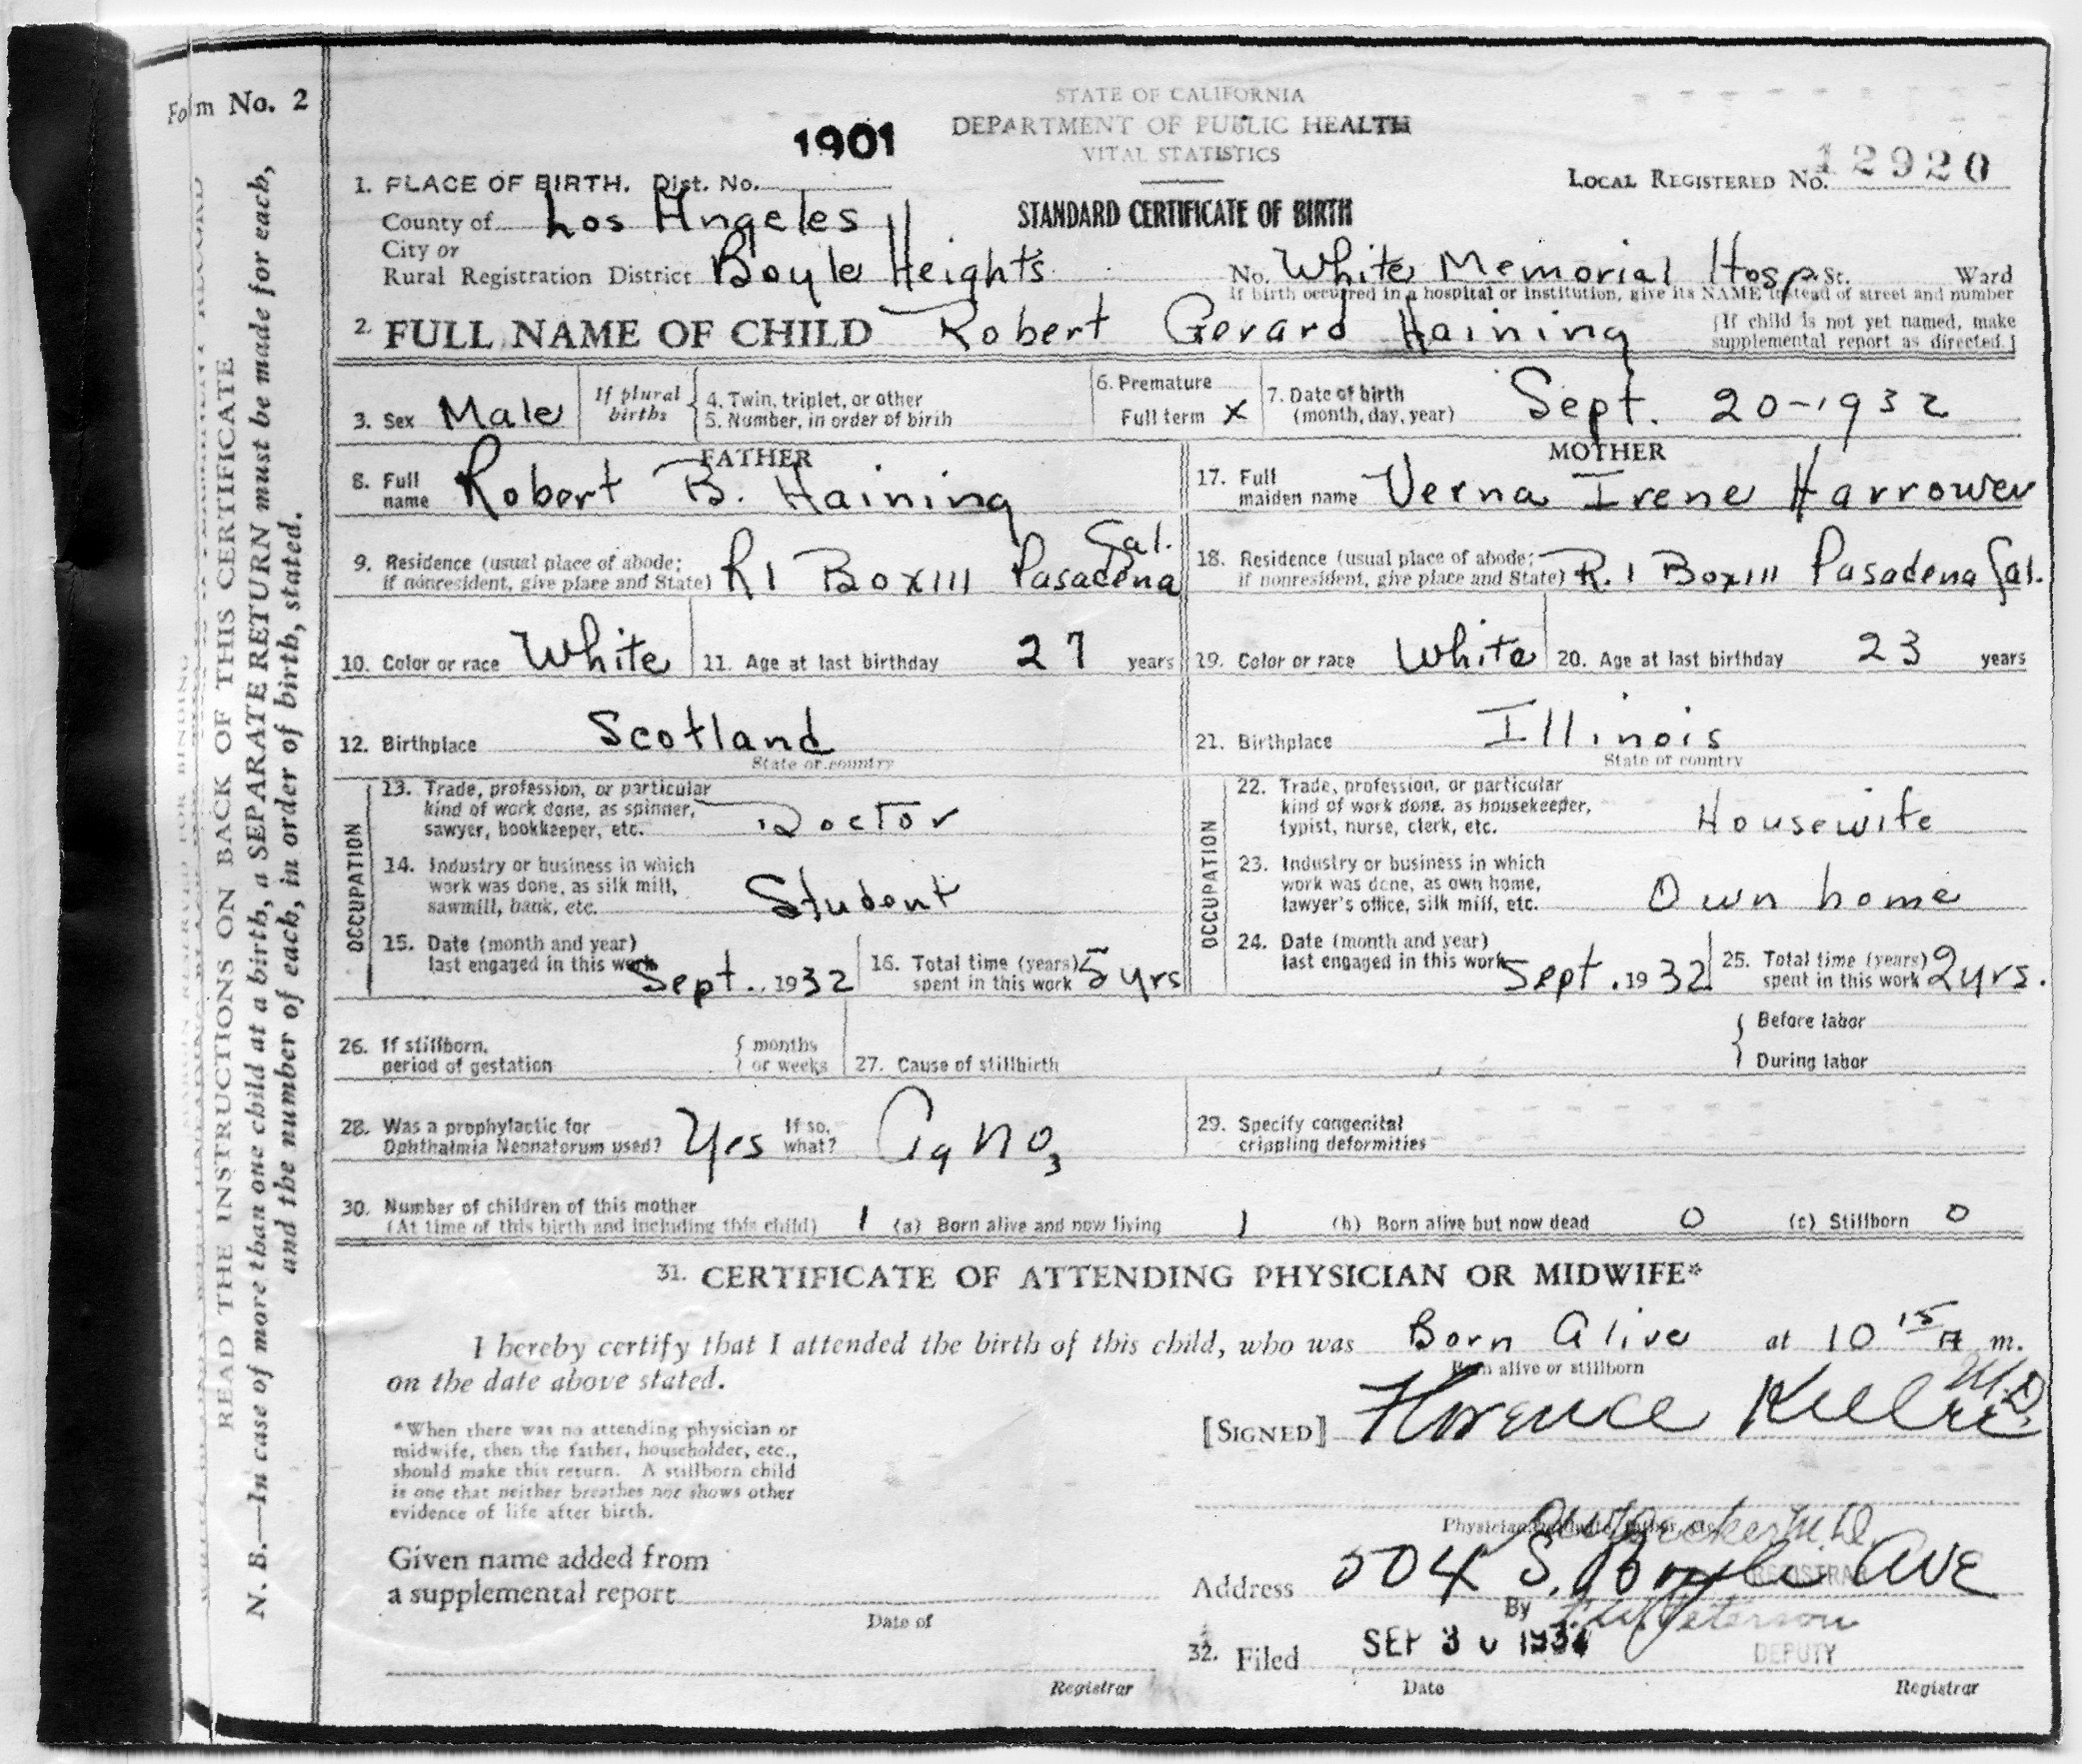 Form No. 2
STATE OF CALIFORNIA
DEPARTMENT OF PUBLIC HEALTH
VITAL STATISTICS
1901
LOCAL REGISTERED No. 12920
1. PLACE OF BIRTH. Dist. No.
County of Los Angeles
STANDARD CERTIFICATE OF BIRTH
City or
Rural Registration District Boyle Heights No. White Memorial Hosp. St. Ward
If birth occurred in a hospital or institution, give its NAME instead of street and number
2. FULL NAME OF CHILD Robert Gerard Haining
[If child is not yet named, make
supplemental report as directed.]
3. Sex Male
If plural births
4. Twin, triplet, or other
5. Number, in order of birth
6. Premature
Full term x
7. Date of birth
(month, day, year) Sept. 20-1932
FATHER
8. Full
name Robert B. Haining
9. Residence (usual place of abode;
if nonresident, give place and State) R1 Box 111 Pasadena Cal.
10. Color or race White
11. Age at last birthday 27 years
12. Birthplace Scotland
State or country
OCCUPATION
13. Trade, profession, or particular
kind of work done, as spinner,
sawyer, bookkeeper, etc. Doctor
14. Industry or business in which
work was done, as silk mill,
sawmill, bank, etc. Student
15. Date (month and year)
last engaged in this work Sept. 1932
16. Total time (years)
spent in this work 5 yrs
MOTHER
17. Full
maiden name Verna Irene Harrower
18. Residence (usual place of abode;
if nonresident, give place and State) R. 1 Box 111 Pasadena Cal.
19. Color or race White
20. Age at last birthday 23 years
21. Birthplace Illinois
State or country
OCCUPATION
22. Trade, profession, or particular
kind of work done, as housekeeper,
typist, nurse, clerk, etc. Housewife
23. Industry or business in which
work was done, as own home,
lawyer's office, silk mill, etc. Own home
24. Date (month and year)
last engaged in this work Sept. 1932
25. Total time (years)
spent in this work 2 yrs.
26. If stillborn,
period of gestation { months
or weeks
27. Cause of stillbirth
{ Before labor
During labor
28. Was a prophylactic for
Ophthalmia Neonatorum used? Yes If so, what? Ag NO3
29. Specify congenital
crippling deformities
30. Number of children of this mother
(At time of this birth and including this child) 1 (a) Born alive and now living 1 (b) Born alive but now dead 0 (c) Stillborn 0
31. CERTIFICATE OF ATTENDING PHYSICIAN OR MIDWIFE*
I hereby certify that I attended the birth of this child, who was Born Alive at 10 15 A m.
Born alive or stillborn
on the date above stated.
[SIGNED] Florence M.D.
*When there was no attending physician or
midwife, then the father, householder, etc.,
should make this return. A stillborn child
is one that neither breathes nor shows other
evidence of life after birth.
Physician
M.D.
REGISTRAR
Address 504 S. Boyle Ave
Given name added from
a supplemental report
Date of
By Peterson
DEPUTY
32. Filed SEP 30 1932
Registrar
Date
Registrar
READ THE INSTRUCTIONS ON BACK OF THIS CERTIFICATE
N. B.—In case of more than one child at a birth, a SEPARATE RETURN must be made for each,
and the number of each, in order of birth, stated.